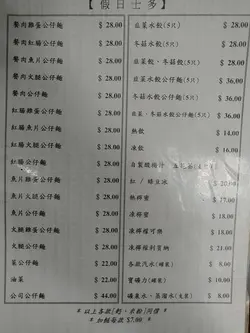 【 假日士多 】
餐肉雞蛋公仔麵 $ 28.00
餐肉紅腸公仔麵 $ 28.00
餐肉魚片公仔麵 $ 28.00
餐肉火腿公仔麵 $ 28.00
餐肉公仔麵 $ 28.00
紅腸雞蛋公仔麵 $ 28.00
紅腸魚片公仔麵 $ 28.00
紅腸火腿公仔麵 $ 28.00
紅腸公仔麵 $ 28.00
魚片雞蛋公仔麵 $ 28.00
魚片火腿公仔麵 $ 28.00
魚片公仔麵 $ 28.00
火腿雞蛋公仔麵 $ 28.00
火腿公仔麵 $ 28.00
菜公仔麵 $ 22.00
油菜 $ 22.00
公司公仔麵 $ 44.00
韭菜水餃(5片) $ 28.00
冬菇水餃(5片) $ 28.00
韭菜餃、冬菇餃(5片) $ 28.00
韭菜水餃公仔麵(5片) $ 36.00
冬菇水餃公仔麵(5片) $ 36.00
韭菜、冬菇水餃公仔麵(5片) $ 36.00
熱飲 $ 14.00
凍飲 $ 16.00
自製酸梅汁
紅 / 綠豆冰 $ 20.00
熱檸蜜 $ 17.00
凍檸蜜 $ 18.00
凍檸檬可樂 $ 18.00
凍檸檬利賓納 $ 21.00
各款汽水(罐裝) $ 8.00
寶礦力(罐裝) $ 10.00
礦泉水、蒸溜水(支裝) $ 8.00
* 以上各款(粉、米粉)同價 *
* 加麵餐款 $7.00 *